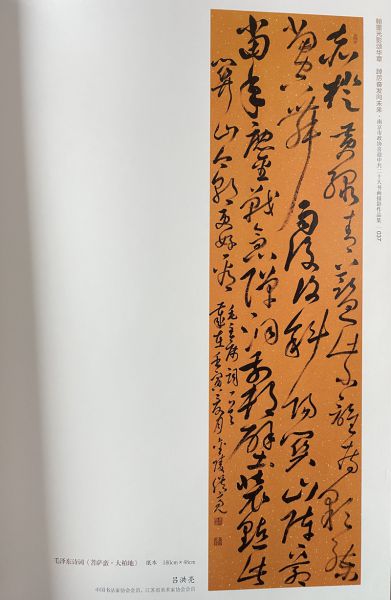 翰墨光影颂华章 踔厉奋发向未来·南京市政协喜迎中共二十大书画摄影作品集 | 037
赤橙黄绿青蓝紫谁持彩练
当空舞雨后复斜阳关山阵阵苍
当年鏖战急弹洞前村壁装点此
关山今朝更好看
毛主席词一首
岁在壬寅
金陵洪亮
毛泽东诗词《菩萨蛮·大柏地》 纸本 180cm×48cm
吕洪亮
中国书法家协会会员、江苏省美术家协会会员